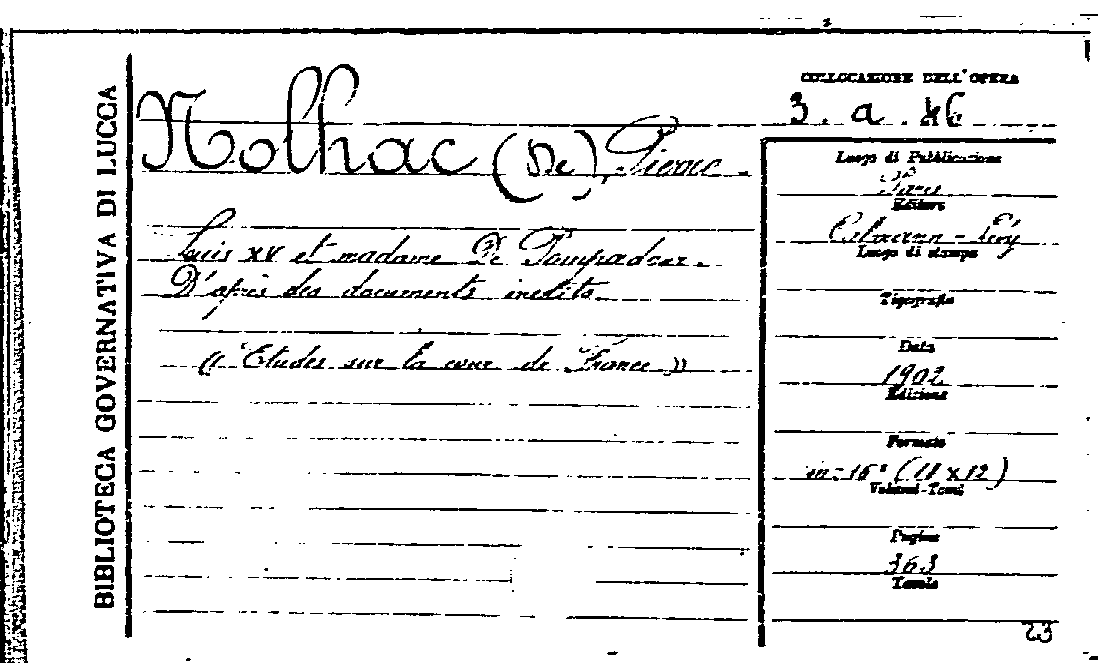 BIBLIOTECA GOVERNATIVA DI LUCCA
Nolhac (De), Pierre.
Louis XV et madame De Pompadour.
D'après des documents inédits
(("Etudes sur la cour de France))
COLLOCAZIONE DELL'OPERA
3. a. 46
Luogo di Pubblicazione
Paris
Editore
Calmann-Lévy
Luogo di stampa
Tipografia
Data
1902
Edizione
Formato
in-16° (11x12)
Volumi-Tomi
Pagine
363
Tavole
23